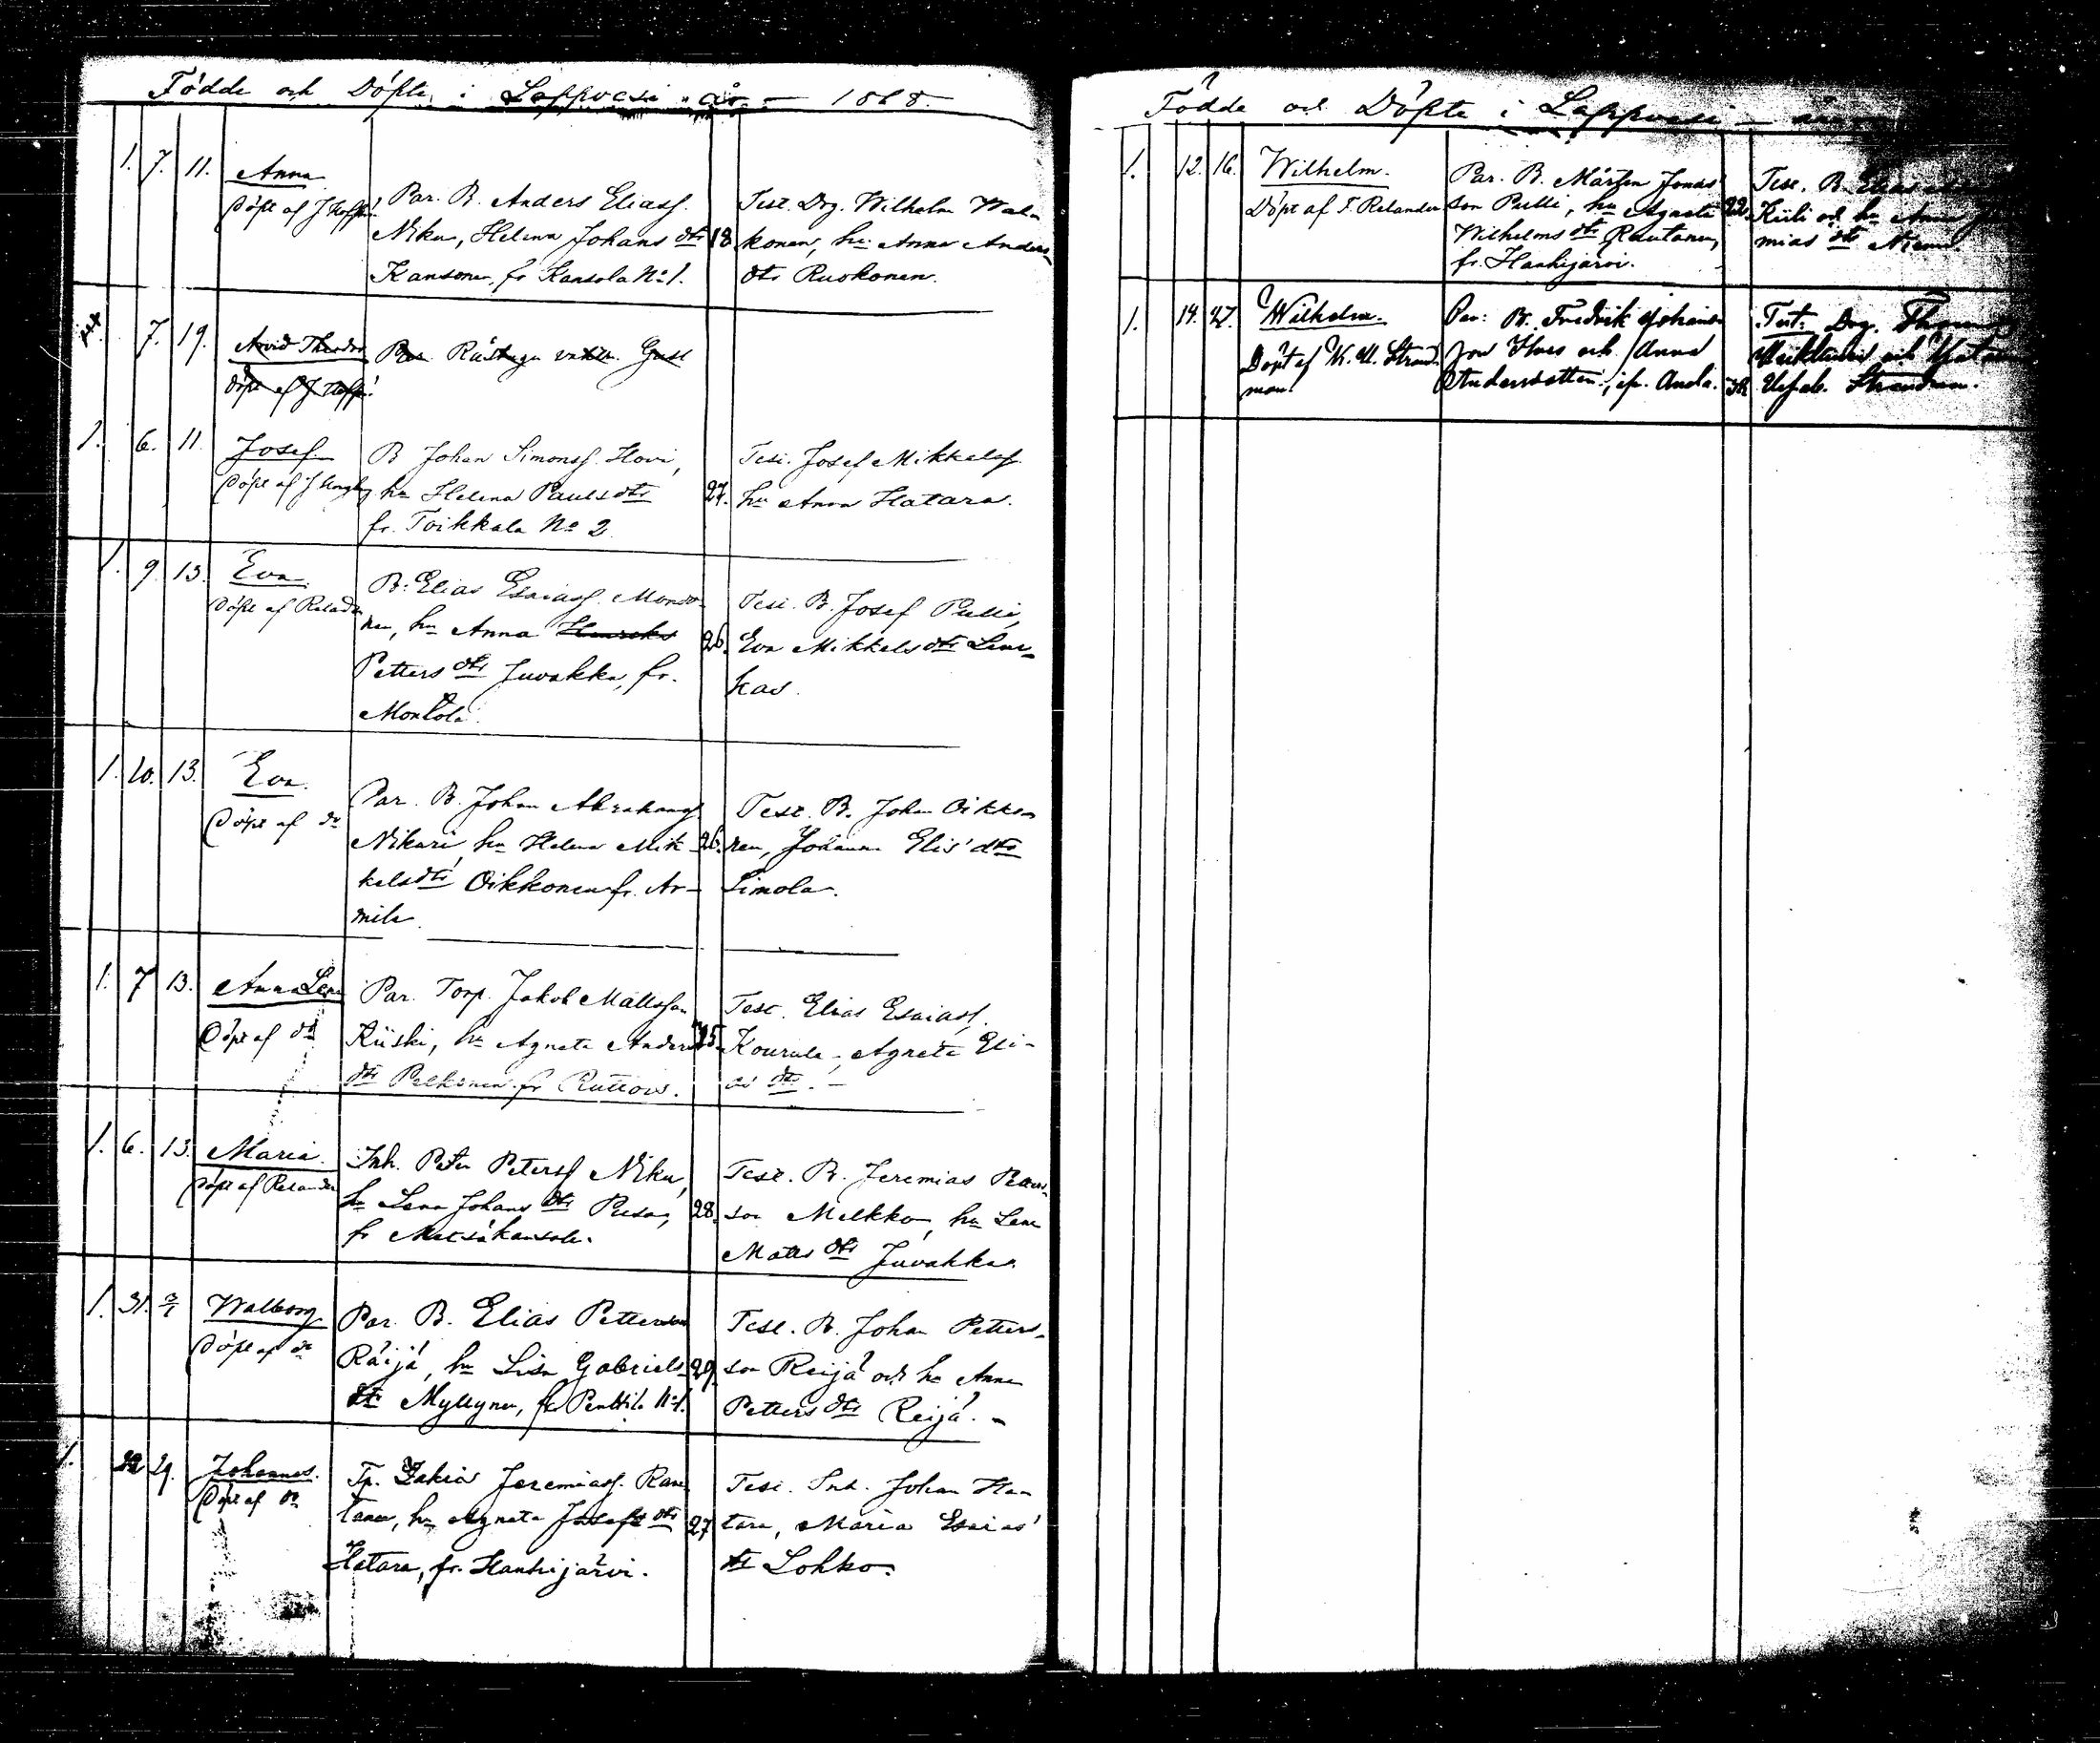 Födde och Döpte i Lappvesi år 1868.
1. 7. 11. Anna
Döpt af J Hoff
Par. B. Anders Eliasf.
Niku, Helena Johans dtr
Kansonen, fr Kansola No 1.
18
Test. Drg. Wilhelm Wal-
konen, hu Anna Anders
dtr Ruokonen.
7. 19. Arvid Theodor
döpt af J Hoff
Par Rustugu vakta. Gust
1. 6. 11. Josef
Döpt af J
B Johan Simonsf. Hovi,
hu Helena Pauls dtr
fr. Toikkala No 2
27.
Test. Josef Mikkelsf
hu Anna Hatara.
1. 9. 13. Eva
Döpt af Relander
B. Elias Esaiasf. Monto-
nen, hu Anna Henriks
Petters dtr Juvakka, fr.
Montola.
26.
Test. B. Josef Pulli,
Eva Mikkels dtr Lens-
kas.
1. 10. 13. Eva.
Döpt af do
Par. B. Johan Abrahamsf
Nikari hu Helena Mik-
kels dtr Oikkonen fr. Ar-
mila.
26.
Test. B. Johan Oikko-
nen, Johanna Elis' dtr
Simola.
1. 7 13. Anna Lena
Döpt af do
Par. Torp. Jakob Mattsson
Kiiski, hu Agneta Anders
dtr Pelkonen fr Ruttois.
25
Test. Elias Esaiasf.
Kourula, Agneta Eli-
as dtr. —
1. 6. 13. Maria.
Döpt af Relander
Inh. Peter Petersf Niku,
hu Lena Johans dtr Pusa,
fr Metsäkansola.
28.
Test. B. Jeremias Paul-
son Melkko, hu Lena
Matts dtr Juvakka.
1. 31. 3/1 Walborg
Döpt af do
Par. B. Elias Petterson
Räijä, hu Lisa Gabriels-
dtr Myllynen, fr Penttilä No 1.
29.
Test. B. Johan Petters-
son Reijä och hu Anna
Petters dtr Reijä. -
1. 22 29. Johannes.
Döpt af do
Tp. Zakris Jeremiasf. Rau-
tanen, hu Agneta Josefs dtr
Hatara, fr. Hanhijärvi.
27
Test. Inh. Johan Ha-
tara, Maria Esaias'
dtr Lohko.
Födde och Döpte i Lappvesi
1. 12. 16. Wilhelm.
Döpt af F. Relander
Par. B. Mårten Jonas
son Pulli, hu Agneta
Wilhelms dtr Rautanen,
fr. Hanhijärvi.
22.
Test. B. Elias
Kiili och hu Anna
mias dtr
1. 14. 27. Wilhelm.
Döpt af K. U. Strand
man
Par: B. Fredrik Johans
son Ilves och Anna
Andersdotter, fr.
38
Test: Drg. Thomas
och
Strandman.